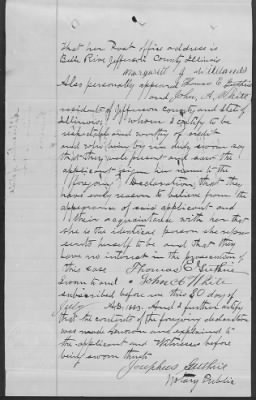 That her Post office address is
Belle Rive Jefferson County Illinois
Margaret J Williams
Also personally appeared Thomas C. Guthrie
and John A. White
residents of Jefferson County and State of
Illinois whom I certify to be
respectable and worthy of credit
and who being by me duly sworn say
that they were present and saw the
applicant sign her name to the
foregoing Declaration, that they
have every reason to believe from the
appearance of said applicant and
their acquaintance with her that
she is the identical person she repre
sents herself to be and that they
have no interest in the prosecution of
this case Thomas C Guthrie
Sworn to and John A White
subscribed before me this 30 day of
July A.D. And I further certify
that the contents of the foregoing declaration
was made known and explained to
the applicant and Witnesses before
being sworn thereto
Josephus Guthrie
Notary Public